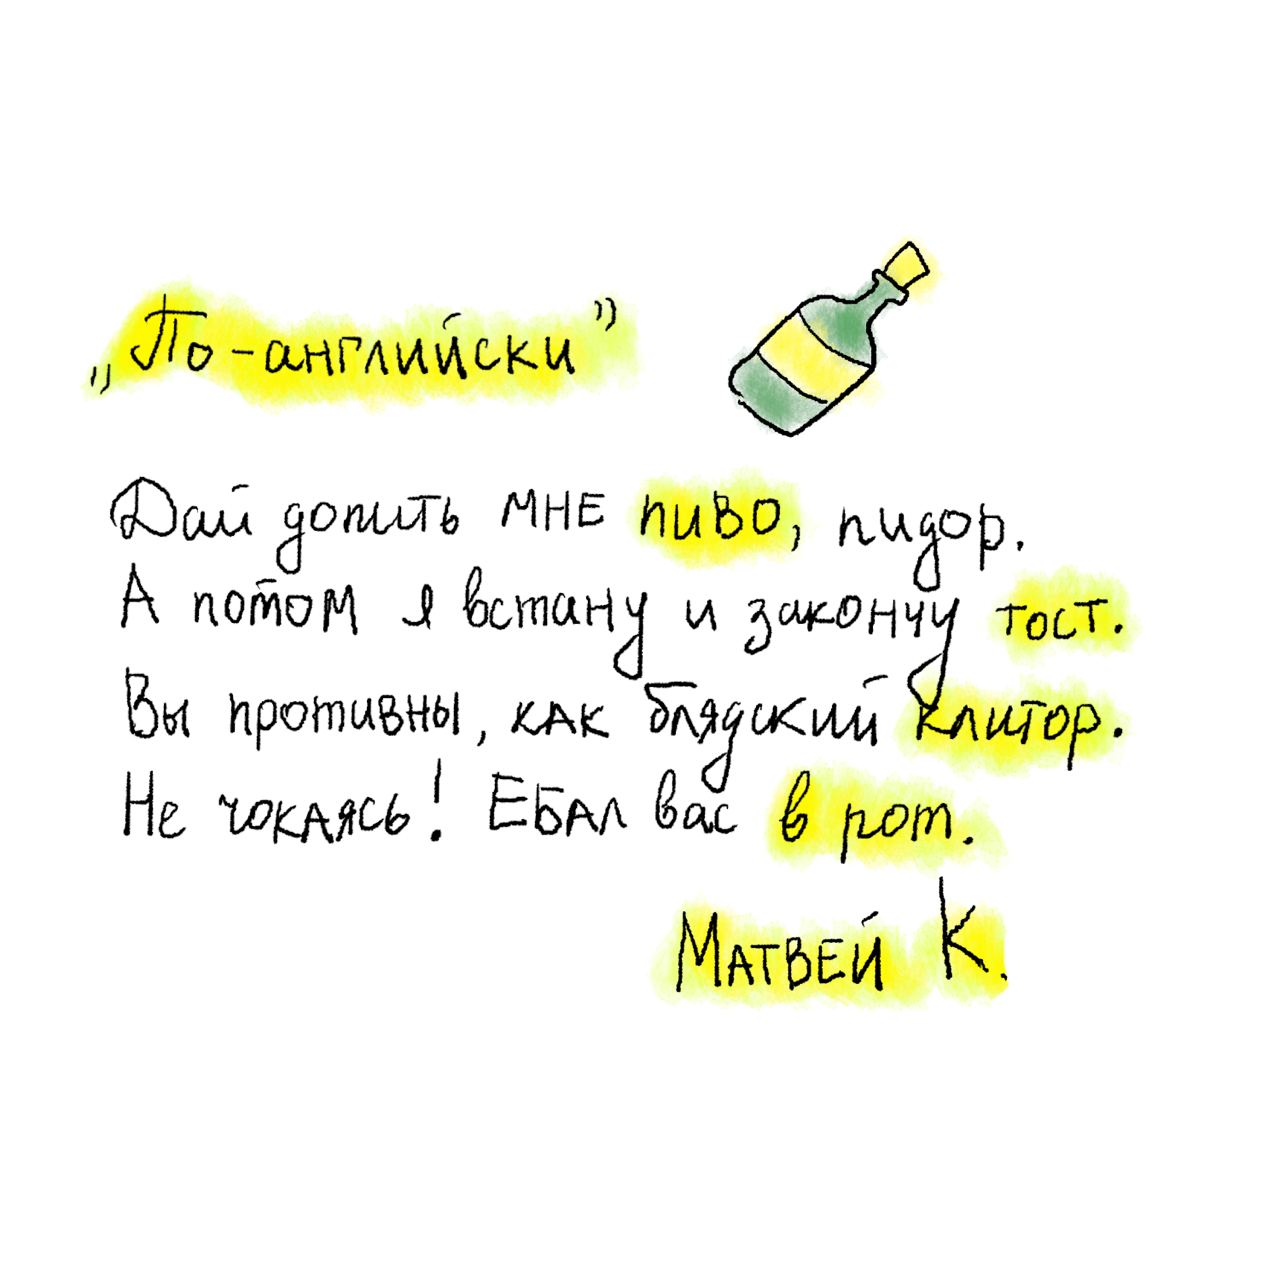 „По-английски”
Дай допить мне пиво, пидор.
А потом я встану и закончу тост.
Вы противны, как блядский клитор.
Не чокаясь! Ебал вас в рот.
Матвей К.